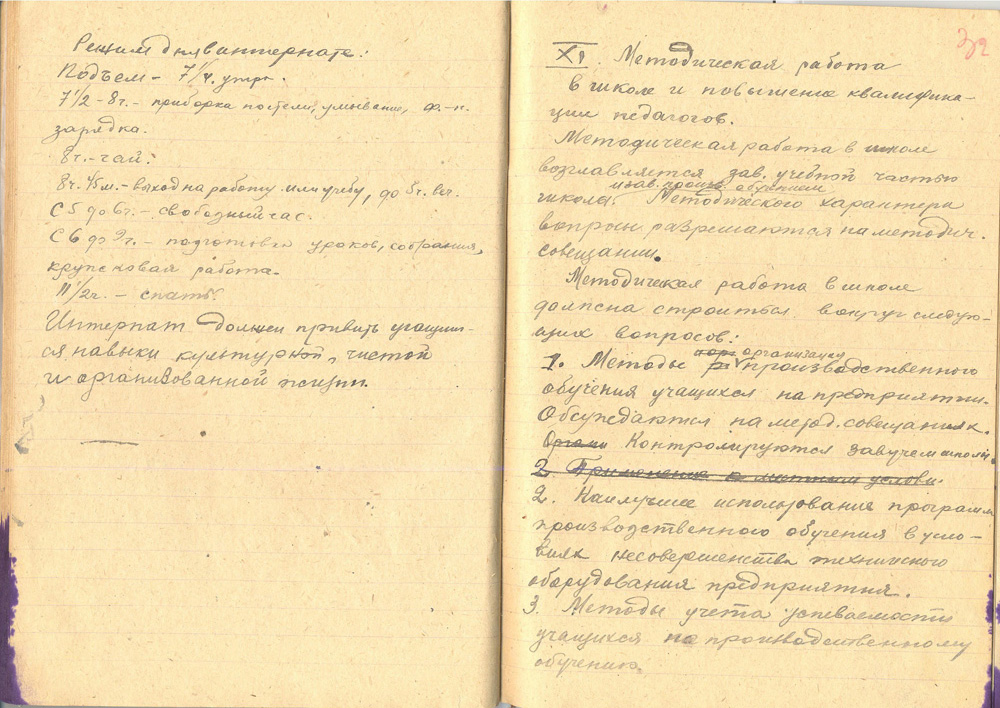 Режим дня в интернате:
Подъем – 7 1/4. утра.
7 1/2 – 8 г. – приборка постели, умывание, ф.-к.
зарядка.
8 г. – чай.
8 г. 45 м. – выход на работу или учебу, до 5 г. веч.
С 5 до 6 г. – свободный час.
С 6 до 9 г. – подготовка уроков, собрания,
кружковая работа.
11 1/2 ч. – спать.
Интернат должен привить учащим-
ся навыки культурной, чистой
и организованной жизни.
32
XI. Методическая работа
в школе и повышение квалифика-
ции педагогов.
Методическая работа в школе
возглавляется зав. учебной частью
и зав. произв. обучением
школа. Методического характера
вопросы разрешаются на методич.
совещании.
Методическая работа в школе
должна строиться вокруг следую-
щих вопросов:
организация
1. Методы производственного
обучения учащихся на предприятии.
Обсуждаются на метод. совещаниях.
Органи Контролируются завучем школы.
2. Применение к местным услови
2. Наилучшее использование программ
производственного обучения в усло-
виях несовершенства технического
оборудования предприятия.
3. Методы учета успеваемости
учащихся по производственному
обучению.